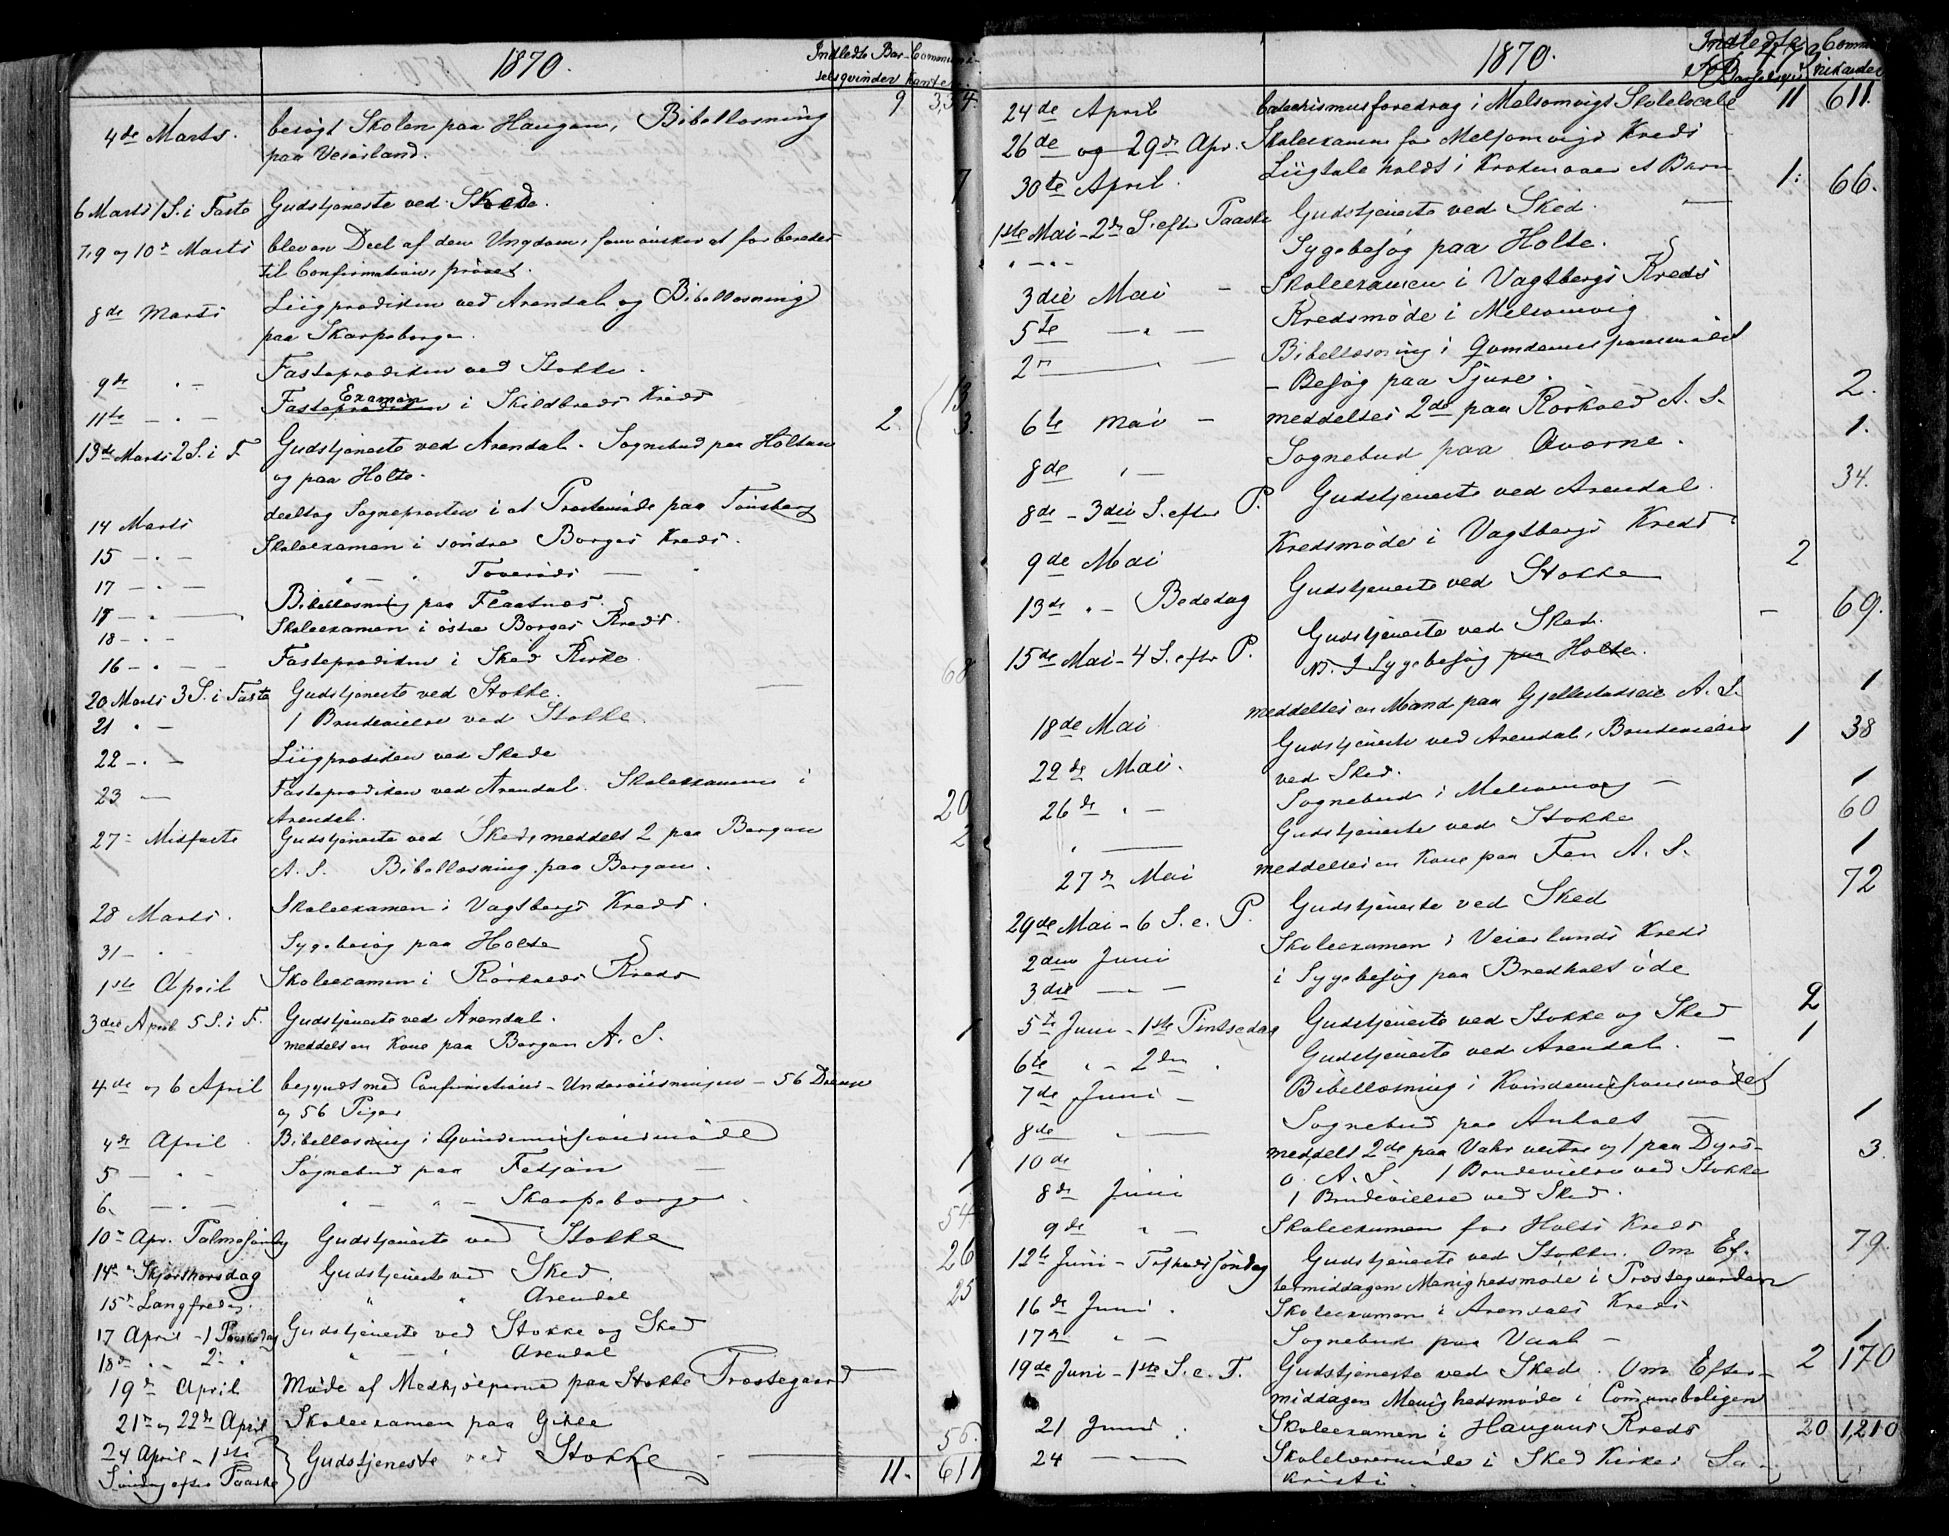 1870.
Indledte Bar- Communi-
selsqvinder kanter
9 334.
4de Marts. besøgt Skolen paa Haugan, Bibellæsning
paa Veierland.
7
6 Marts 1 S. i Faste Gudstjeneste ved Skede.
7, 9 og 10de Marts blev en Deel af den Ungdom, som ønsker at forberedes
til Confirmation, prøvet.
8de Marts Liigprædiken ved Arendal og Bibellæsning
paa Skarpeborge.
9de " - Fasteprædiken ved Stokke.
13
11te - " - Fasteprædiken Examen i Skildbreds Kreds
2. 3.
13de Marts 2 S. i F. Gudstjeneste ved Arendal. Sognebud paa Holtan
og paa Holte.
14 Marts deeltog Sognepresten i et Prostemøde paa Tønsberg
15 - " - Skoleexamen i søndre Borges Kreds.
17 - " - " - " Toverøds - "
18 - " - Bibellæsning paa Flaatnes.
18 - " - Skoleexamen i østre Borges Kreds.
16 - " - - Fasteprædiken i Sked Kirke.
68
20 Marts 3 S. i Faste Gudstjeneste ved Stokke. -
21 " - 1 Brudevielse ved Stokke.
22 - " - Liigprædiken ved Skede
23 - Fasteprædiken ved Arendal. Skoleexamen i
Arendal. 20
27de Midfaste Gudstjeneste ved Sked, meddelt 2 paa Borgan 2
A. S. Bibellæsning paa Borgan.
28 Marts. Skoleexamen i Vagtbergs Kreds.
31 - " Sygebesøg paa Holte
1ste April Skoleexamen i Rørkolds Kreds
3die April 5 S. i F. Gudstjeneste ved Arendal.
meddelt en Kone paa Borgan A. S. 1
4de og 6 April begyndt med Confirmations-Underviisningen - 56 Drenge
og 56 Piger
4de April Bibellæsning i Qvindemissionsmøde
5 - " - Sognebud paa Fetjan - 1
6. - " - " - " - Skarpeborge. 1
54
10de Apr. Palmesøndag Gudstjeneste ved Stokke
26
14de Skjærthorsdag Gudstjeneste ved Sked.
15de Langfredag. " " Arendal 25
17 April - 1 Paaskedag Gudstjeneste ved Stokke og Sked
18de " - 2 " " - " Arendal
19de April Møde af Medhjælperne paa Stokke Prostegaard
21de og 22de April Skoleexamen paa Gjkle
56.
24 April - 1ste
Søndag efter Paaske } Gudstjeneste ved Stokke - 11. 611
1870.
Indledte
Barselqv. Commu-
nikanter
24de April Catechismusforedrag i Melsomvigs Skolelocale 11 611.
26de og 29de Apr. Skoleexamen for Melsomvigs Kreds
30te April. Liigtale holdt i Kroken over et Barn
1ste Mai - 2den S. efter Paaske Gudstjeneste ved Sked. - 1. 66.
" - " - Sygebesøg paa Holte.
3die Mai - Skoleexamen i Vagtbergs Kreds
5te - " - Kredsmøde i Melsomvig
2den - - Bibellæsning i Qvindemissionsmødet
- Besøg paa Sjure.
6te Mai - meddeltes 2de paa Rørkold A. S. 2.
8de " - Sognebud paa Averne. 1.
8de - 3die S. efter P. Gudstjeneste ved Arendal. 34.
9de Mai Kredsmøde i Vagtbergs Kreds
13de " - Bededag Gudstjeneste ved Stokke 2
15de Mai - 4 S. efter P. Gudstjeneste ved Sked. - 69.
Sygebesøg paa Holte.
18de Mai meddeltes en Mand paa Gjellestadeie A. S. 1
22de Mai. Gudstjeneste ved Arendal, Brudevielse 1 38
ved Sked.
26de " - Sognebud i Melsomvig - 1
" - Gudstjeneste ved Stokke 60
27de Mai meddeltes en Kone paa Fen A. S. 1
29de Mai - 6 S. e. P. Gudstjeneste ved Sked 72
2den Juni Skoleexamen i Veierlands Kreds
3die - " - 1 Sygebesøg paa Bredholt øde
5te Juni - 1ste Pintsedag Gudstjeneste ved Stokke og Sked 2
6te " - 2den . Gudstjeneste ved Arendal. - 1
7de Juni - Bibellæsning i Kvindemissionsmødet
8de " - Sognebud paa Anholt - 1
10de meddelt 2de paa Vahr vestre og 1 paa Dyrs- 3.
ø. A. S. 1 Brudevielse ved Stokke
8de Juni 1 Brudevielse ved Sked.
9de " - Skoleexamen for Holts Kreds
12te Juni - Trefoldsøndag Gudstjeneste ved Stokke. Om Ef- 79.
termiddagen Menighedsmøde i Prostegaarden
16de Juni. Skoleexamen i Arendals Kreds
17de " - Sognebud paa Vaal - 1
19de Juni - 1ste S. e. T. Gudstjeneste ved Sked. Om Efter- 2 170
middagen Menighedsmøde i Comuneboligen
21 Juni . Skoleexamen i Haugans Kreds 20 1,210
24 - " - Skolelærermøde i Sked Kirkes Sa-
kristi.